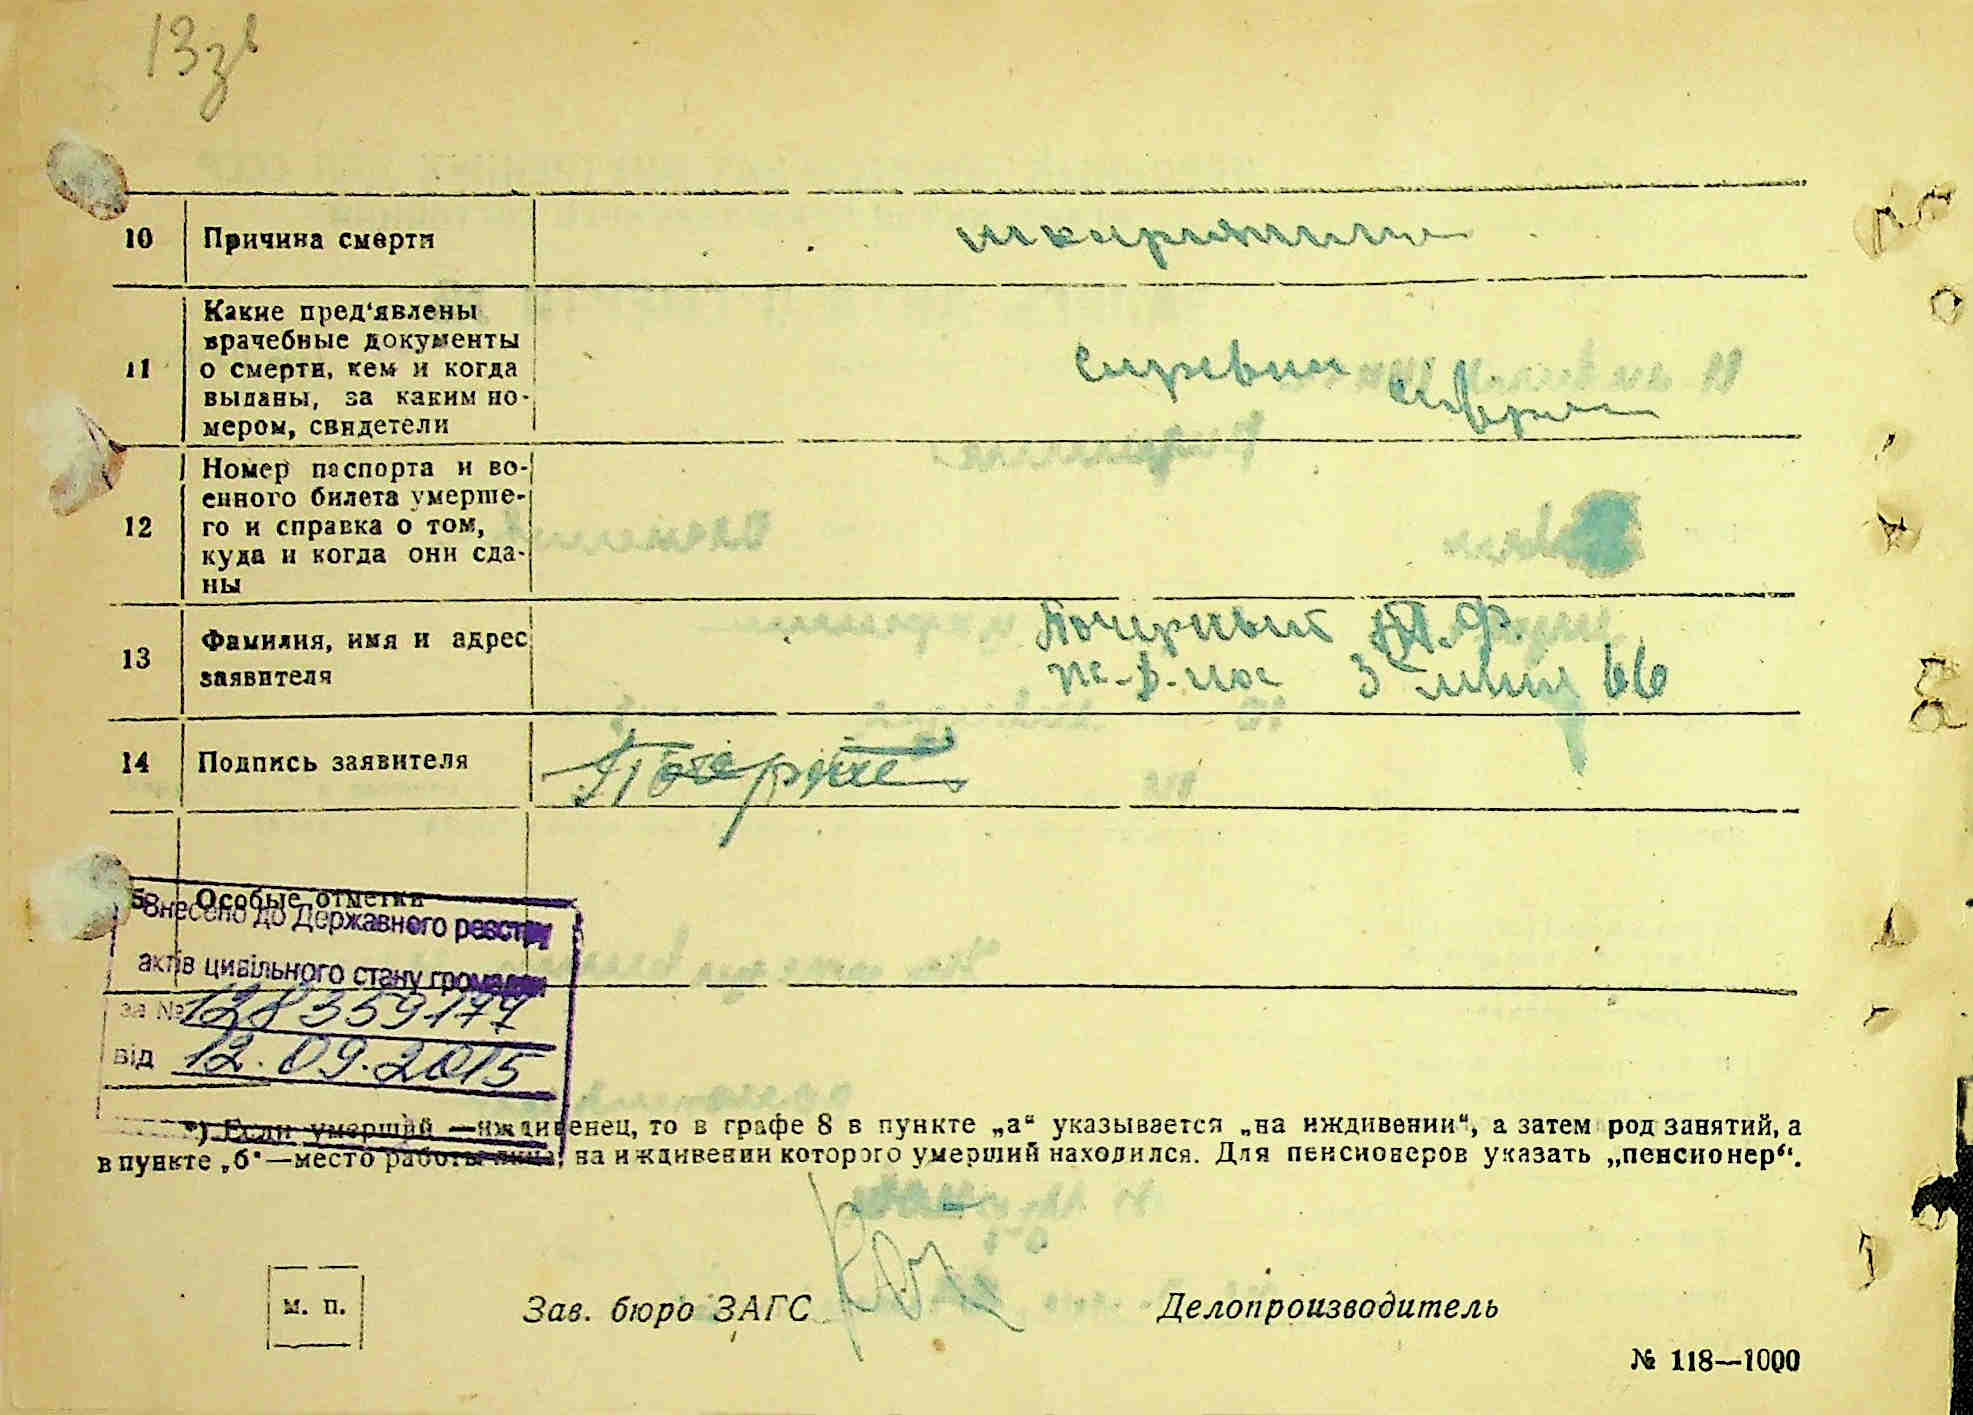 13зв
10 Причина смерти скарлатина
11 Какие пред'явлены
врачебные документы
о смерти, кем и когда
выданы, за каким но-
мером, свидетели
справка
12 Номер паспорта и во-
енного билета умерше-
го и справка о том,
куда и когда они сда-
ны
13 Фамилия, имя и адрес
заявителя
Ф.
3 66
14 Подпись заявителя
Особые отметки
Внесено до Державного реєстру
актів цивільного стану громадян
за № 128359177
від 12.09.2015
*) Если умерший —иждивенец, то в графе 8 в пункте „а“ указывается „на иждивении“, а затем род занятий, а
в пункте „б“—место работы лица, на иждивении которого умерший находился. Для пенсионеров указать „пенсионер“.
м. п. Зав. бюро ЗАГС Делопроизводитель
№ 118—1000